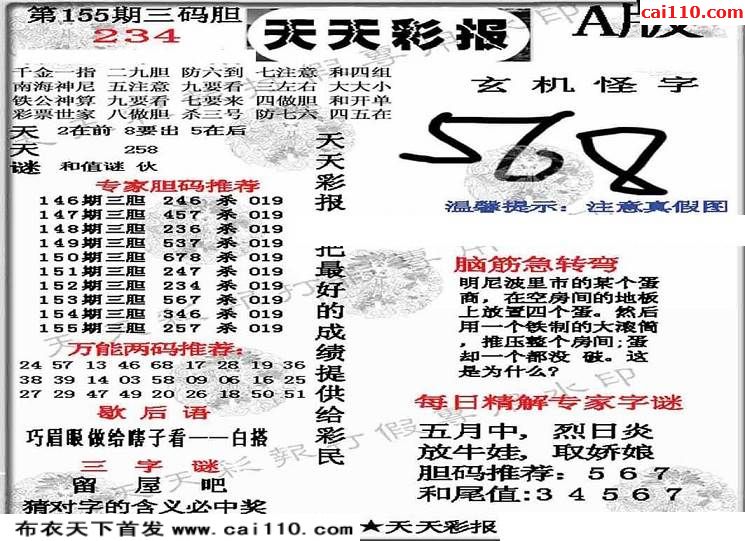 第155期三码胆
234
天天彩报
A版
cai110.com
千金一指 二九胆 防六到 七注意 和四组
南海神尼 五注意 九要看 三左右 大大小
铁公神算 九要看 七要来 四做胆 和开单
彩票世家 八做胆 杀三号 防七六 四五在
天 2在前 8要出 5在后
天 258
谜 和值谜 伙
专家胆码推荐
146期三胆 246 杀 019
147期三胆 457 杀 019
148期三胆 236 杀 019
149期三胆 537 杀 019
150期三胆 678 杀 019
151期三胆 247 杀 019
152期三胆 234 杀 019
153期三胆 567 杀 019
154期三胆 346 杀 019
155期三胆 257 杀 019
万能两码推荐:
24 57 13 46 68 17 28 19 36
38 39 14 03 58 09 06 16 25
27 29 47 49 20 26 18 50 51
歇后语
巧眉眼做给瞎子看——白搭
三字谜
留 屋 吧
猜对字的含义必中奖
天天彩报
把最好的成绩提供给彩民
玄机怪字
568
温馨提示: 注意真假图
脑筋急转弯
明尼波里市的某个蛋
商,在空房间的地板
上放置四个蛋。然后
用一个铁制的大滚筒
,推压整个房间;蛋
却一个都没 破。这
是为什么?
每日精解专家字谜
五月中, 烈日炎
放牛娃, 取娇娘
胆码推荐: 5 6 7
和尾值:3 4 5 6 7
布衣天下首发 www.cai110.com
★天天彩报